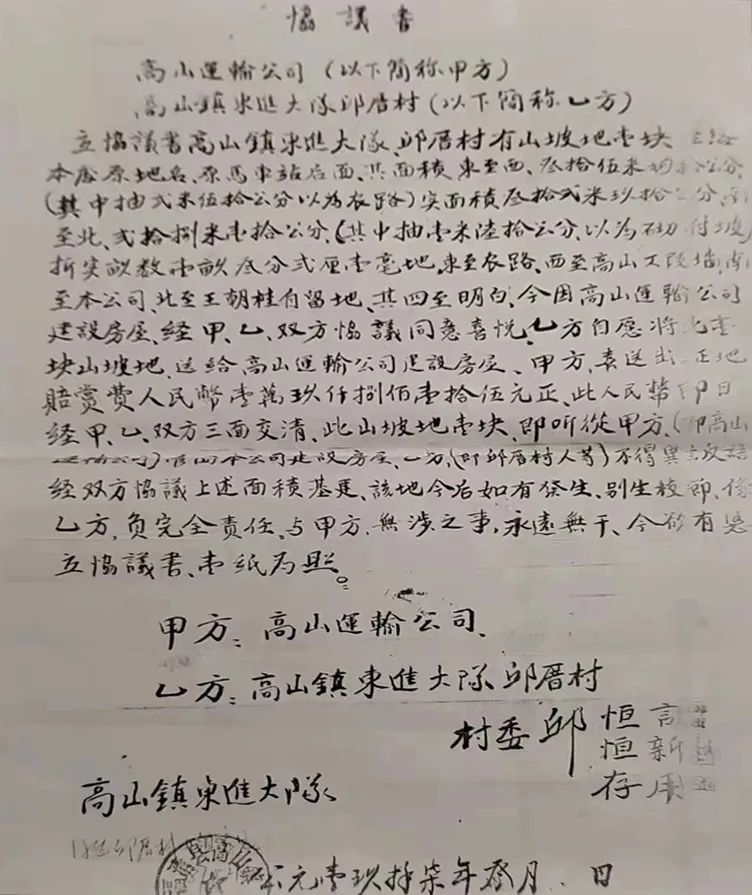 協議書
高山運輸公司(以下简称甲方)
高山鎮東進大隊邱厝村(以下简称乙方)
立協議書高山鎮東進大隊、邱厝村有山坡地壹块
本处原地名、原馬車站后面、其面積東至西、叁拾伍米
(其中抽弍米伍拾公分以为农路)实面積叁拾弍米玖拾公分、南
至北、弍拾捌米壹拾公分、(其中抽壹米陸拾公分、以为砌付坡)
折实畝数壹畝叁分弍厘壹毫地、東至农路、西至高山工段墙、南
至本公司、北至王朝桂自留地、其四至明白、今因高山運輸公司
建設房屋、經甲、乙、双方協議同意喜悦、乙方自愿将此壹
块山坡地、送給高山運輸公司建設房屋、甲方、喜送出 正地
賠赏費人民幣壹萬玖仟捌佰壹拾伍元正、此人民幣即日
经甲、乙、双方三面交清、此山坡地壹块、即听從甲方、(即高山
公司) 本公司建設房屋、乙方、(即邱厝村人等)不得異言反語
经双方協議上述面積基定、該地今后如有發生、别生枝節、係
乙方、负完全責任、与甲方、無涉之事,永遠無干、今欲有憑
立協議書、壹紙为照。
甲方：高山運輸公司、
乙方：高山鎮東進大隊邱厝村
村委 邱 恒言
恒新
存用
高山鎮東進大隊
高山
公元壹玖捌柒年叁月 日